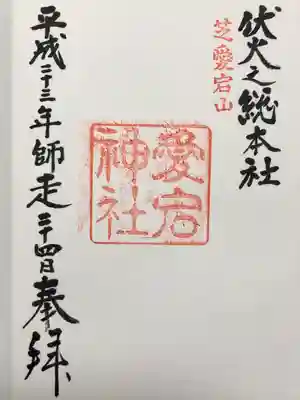 伏火之総本社
芝愛宕山
愛宕
神社
平成二十三年師走二十四日奉拝